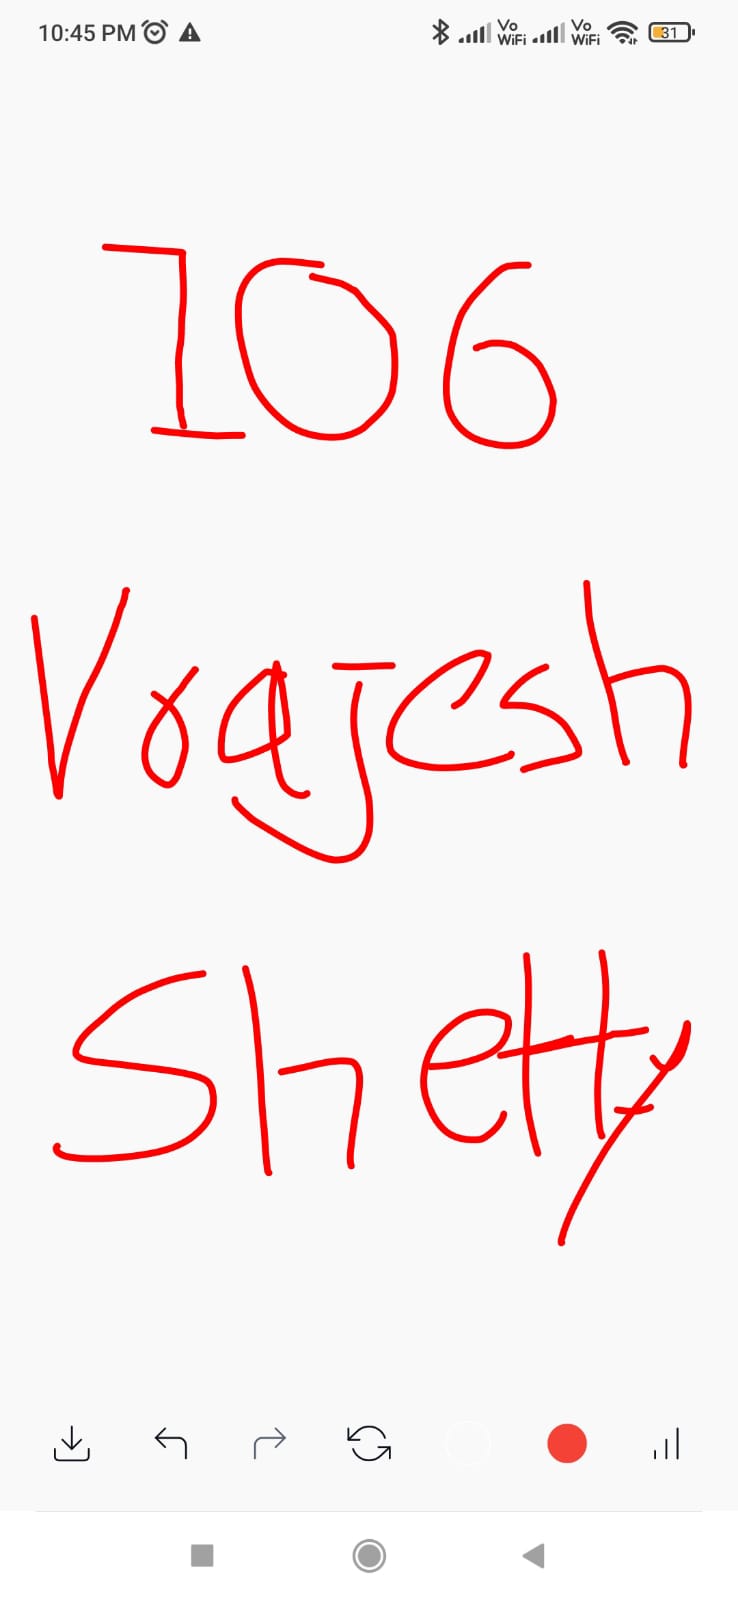 10:45 PM Vo WiFi Vo WiFi 31
106
Vrajesh
Shetty